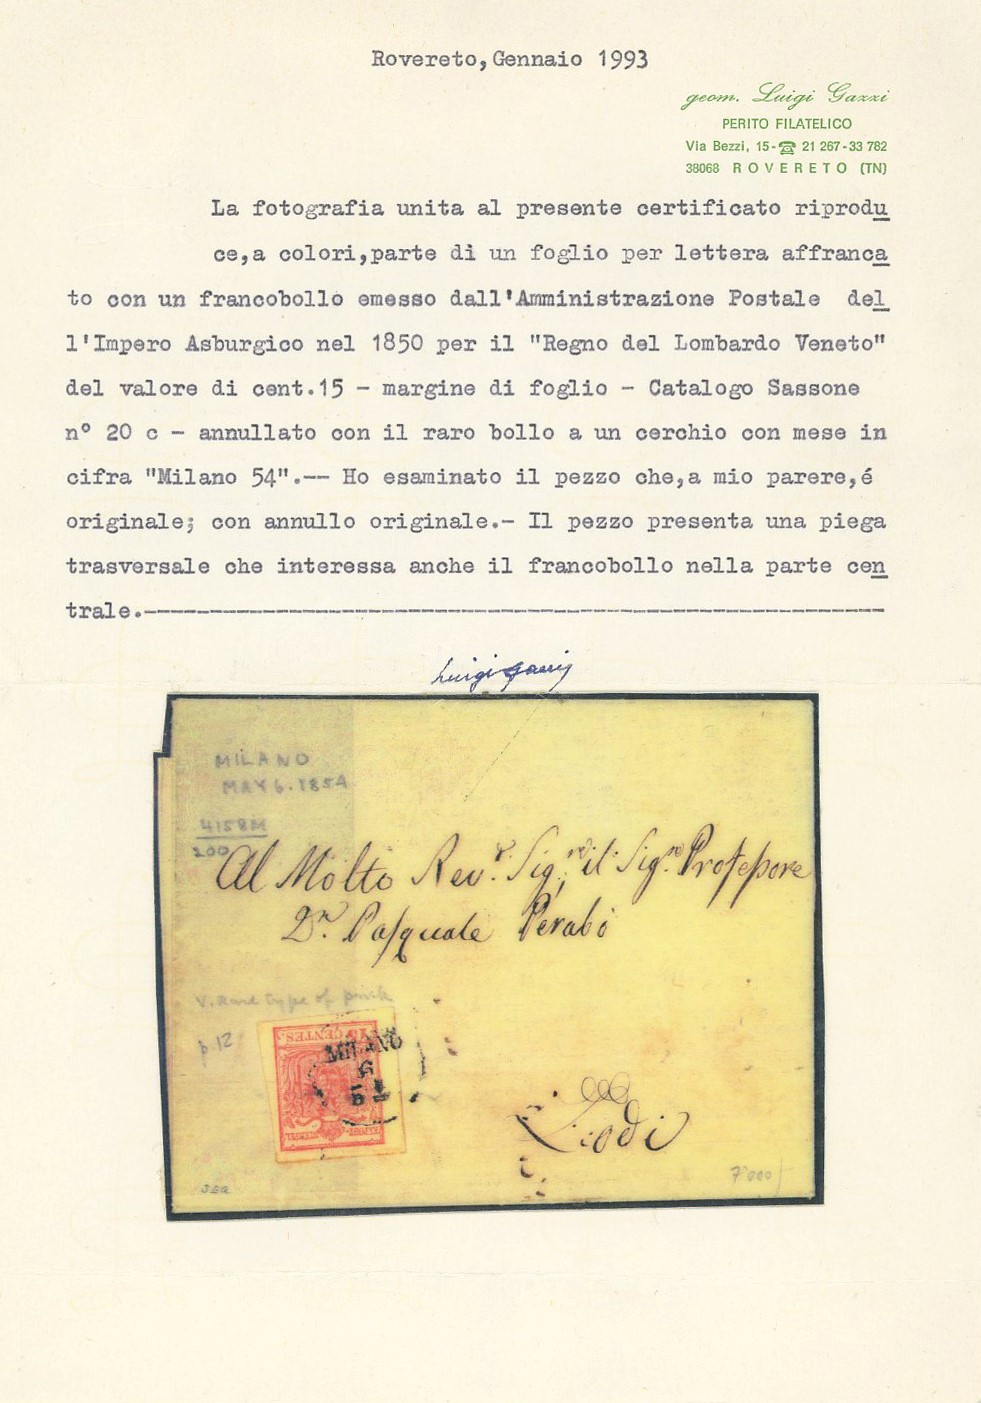 Rovereto, Gennaio 1993
geom. Luigi Gazzi
PERITO FILATELICO
Via Bezzi, 15-☎ 21 267-33 782
38068 ROVERETO (TN)
La fotografia unita al presente certificato riprodu
ce,a colori,parte di un foglio per lettera affranca
to con un francobollo emesso dall'Amministrazione Postale del
l'Impero Asburgico nel 1850 per il "Regno del Lombardo Veneto"
del valore di cent.15 - margine di foglio - Catalogo Sassone
n° 20 c - annullato con il raro bollo a un cerchio con mese in
cifra "Milano 54".-- Ho esaminato il pezzo che,a mio parere,é
originale; con annullo originale.- Il pezzo presenta una piega
trasversale che interessa anche il francobollo nella parte cen
trale.-
Luigi Gazzi
MILANO
MAY 6. 1854
4158M
200
Al Molto Rev. Sig.re il Sig.re Profefsore
D.n Pasquale Perabò
V. Rare type of pmk
p.12
15 CENTES.
MILANO
6
5
54
Lodi
7'000/